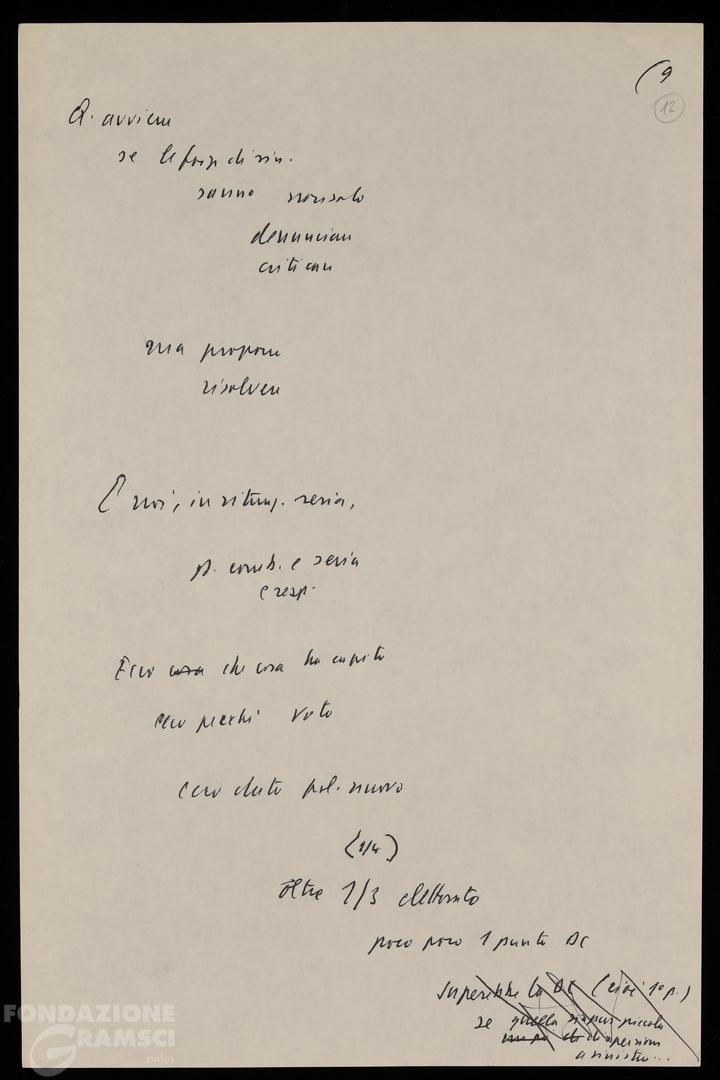 (9
12
Q. avviene
se le forze di sin.
sanno non solo
denunciare
criticare
ma proporre
risolvere
E noi, in situaz. seria,
p. comb. e seria
e resp.
Ecco cosa che cosa ha capito
ecco perché voto
ecco dato pol. nuovo
oltre 1/3 elettorato
poco poco 1 punto DC
supererebbe la DC (cioè 1° p.)
se quella sia pur piccola
di dispersione
a sinistra...
FONDAZIONE
GRAMSCI
onlus